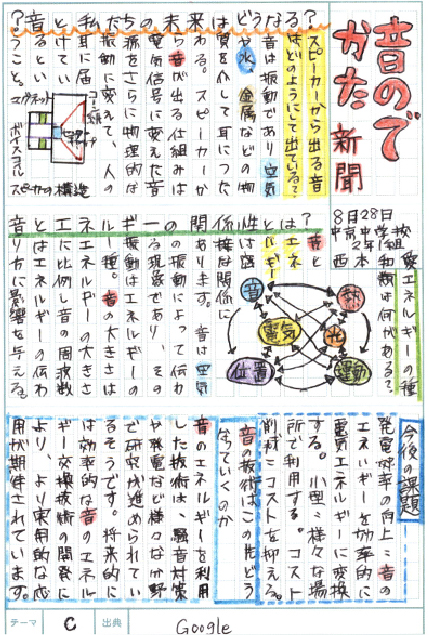 音のでかた新聞
8月28日
私たちの未来はどうなる?
スピーカーから出る音
はどのようにして出ている?
音は振動であり空気
や水、金属などの物
質を介して耳につた
わる。スピーカーか
ら音が出る仕組みは
電気信号に変えた音
源をさらに物理的な
振動に変えて、人の
耳に届
けてい
るとい
うこと。
マグネット
コーン
ボイスコイル
スピーカーの構造
音とエネルギーの関係性は?
エネルギーの種
類は何がある?
音
熱
電気
光
位置
運動
音と
エネ
ルギー
は密
接な関係に
あります。音は空気
の振動によって伝わ
る現象であり、その
振動はエネルギーの
一種。音の大きさは
エネルギーの大きさ
に比例し音の周波数
はエネルギーの伝わ
り方に影響を与える。
今後の課題
発電効率の向上:音の
エネルギーを効率的に
電気エネルギーに変換
する。小型:様々な場
所で利用する。コスト
削減:コストを抑える。
音の技術はこの先どう
なっていくのか
音のエネルギーを利用
した技術は、騒音対策
や発電など様々な分野
で研究が進められてい
るそうです。将来的に
は効率的な音のエネル
ギー変換技術の開発に
より、より実用的な応
用が期待されています。
テーマ C 出典 Google